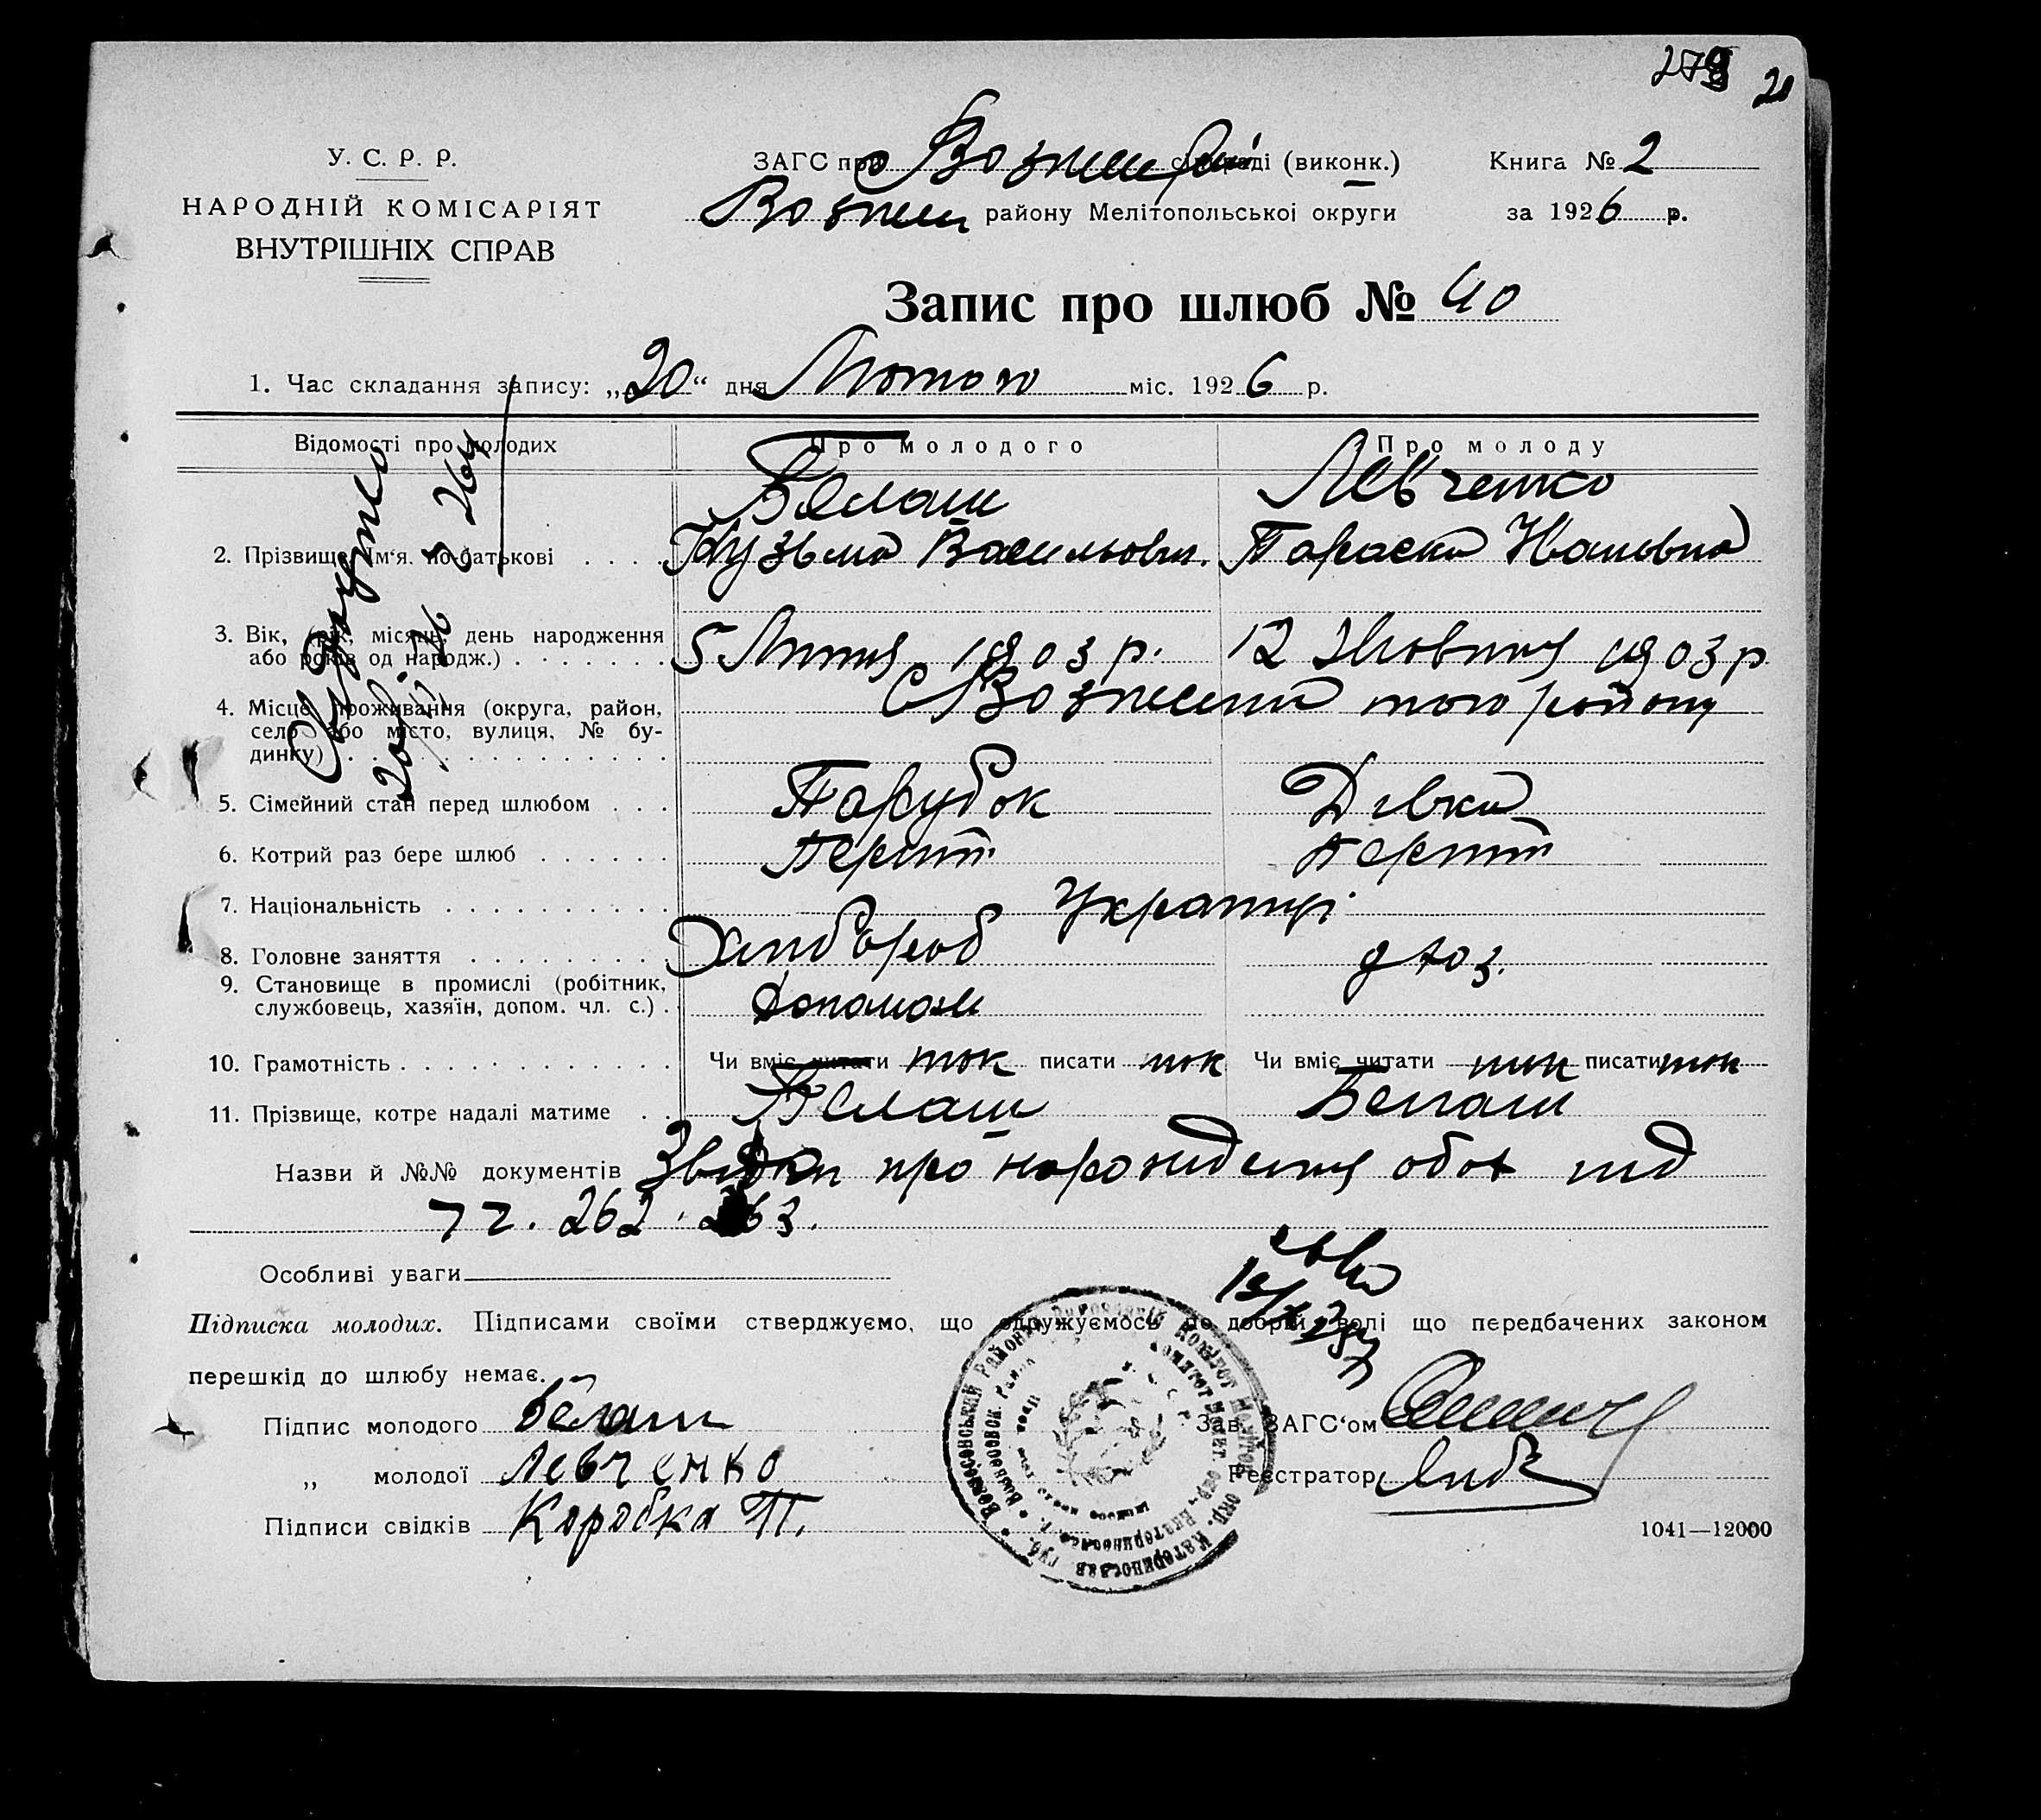 20
У. С. Р. Р.
НАРОДНІЙ КОМІСАРІЯТ
ВНУТРІШНІХ СПРАВ
ЗАГС при Вознес (виконк.)
Книга № 2
Вознесен району Мелітопольської округи
за 1926 р.
Запис про шлюб № 40
1. Час складання запису: „20“ дня Лютого міс. 1926 р.
Відомості про молодих
Про молодого
Про молоду
Белаш
Левченко
2. Прізвище, Ім'я, по-батькові
Кузьма Васильович.
Параска Ивановна
3. Вік, (рік, місяць, день народження
або років од народж.)
5 Липня 1903 р.
12 Жовтня 1903 р
4. Місце проживання (округа, район,
село або місто, вулиця, № бу-
динку)
с Вознесенка того району
5. Сімейний стан перед шлюбом
Парубок
Дівка
6. Котрий раз бере шлюб
Перший
Перший
7. Національність
Українці
8. Головне заняття
Хлібороб
9. Становище в промислі (робітник,
службовець, хазяїн, допом. чл. с.)
Допомож
10. Грамотність
Чи вміє читати так писати так
Чи вміє читати писати
11. Прізвище, котре надалі матиме
Белаш
Белаш
Назви й №№ документів Звідки про народження обох під
чч. 262. 263.
Особливі уваги
Підписка молодих. Підписами своїми стверджуємо, що одружуємось по добрій волі що передбачених законом
перешкід до шлюбу немає.
Підпис молодого Белаш
„ молодої Левченко
Підписи свідків Коробка П.
Зав. ЗАГС'ом
Реєстратор
1041—12000